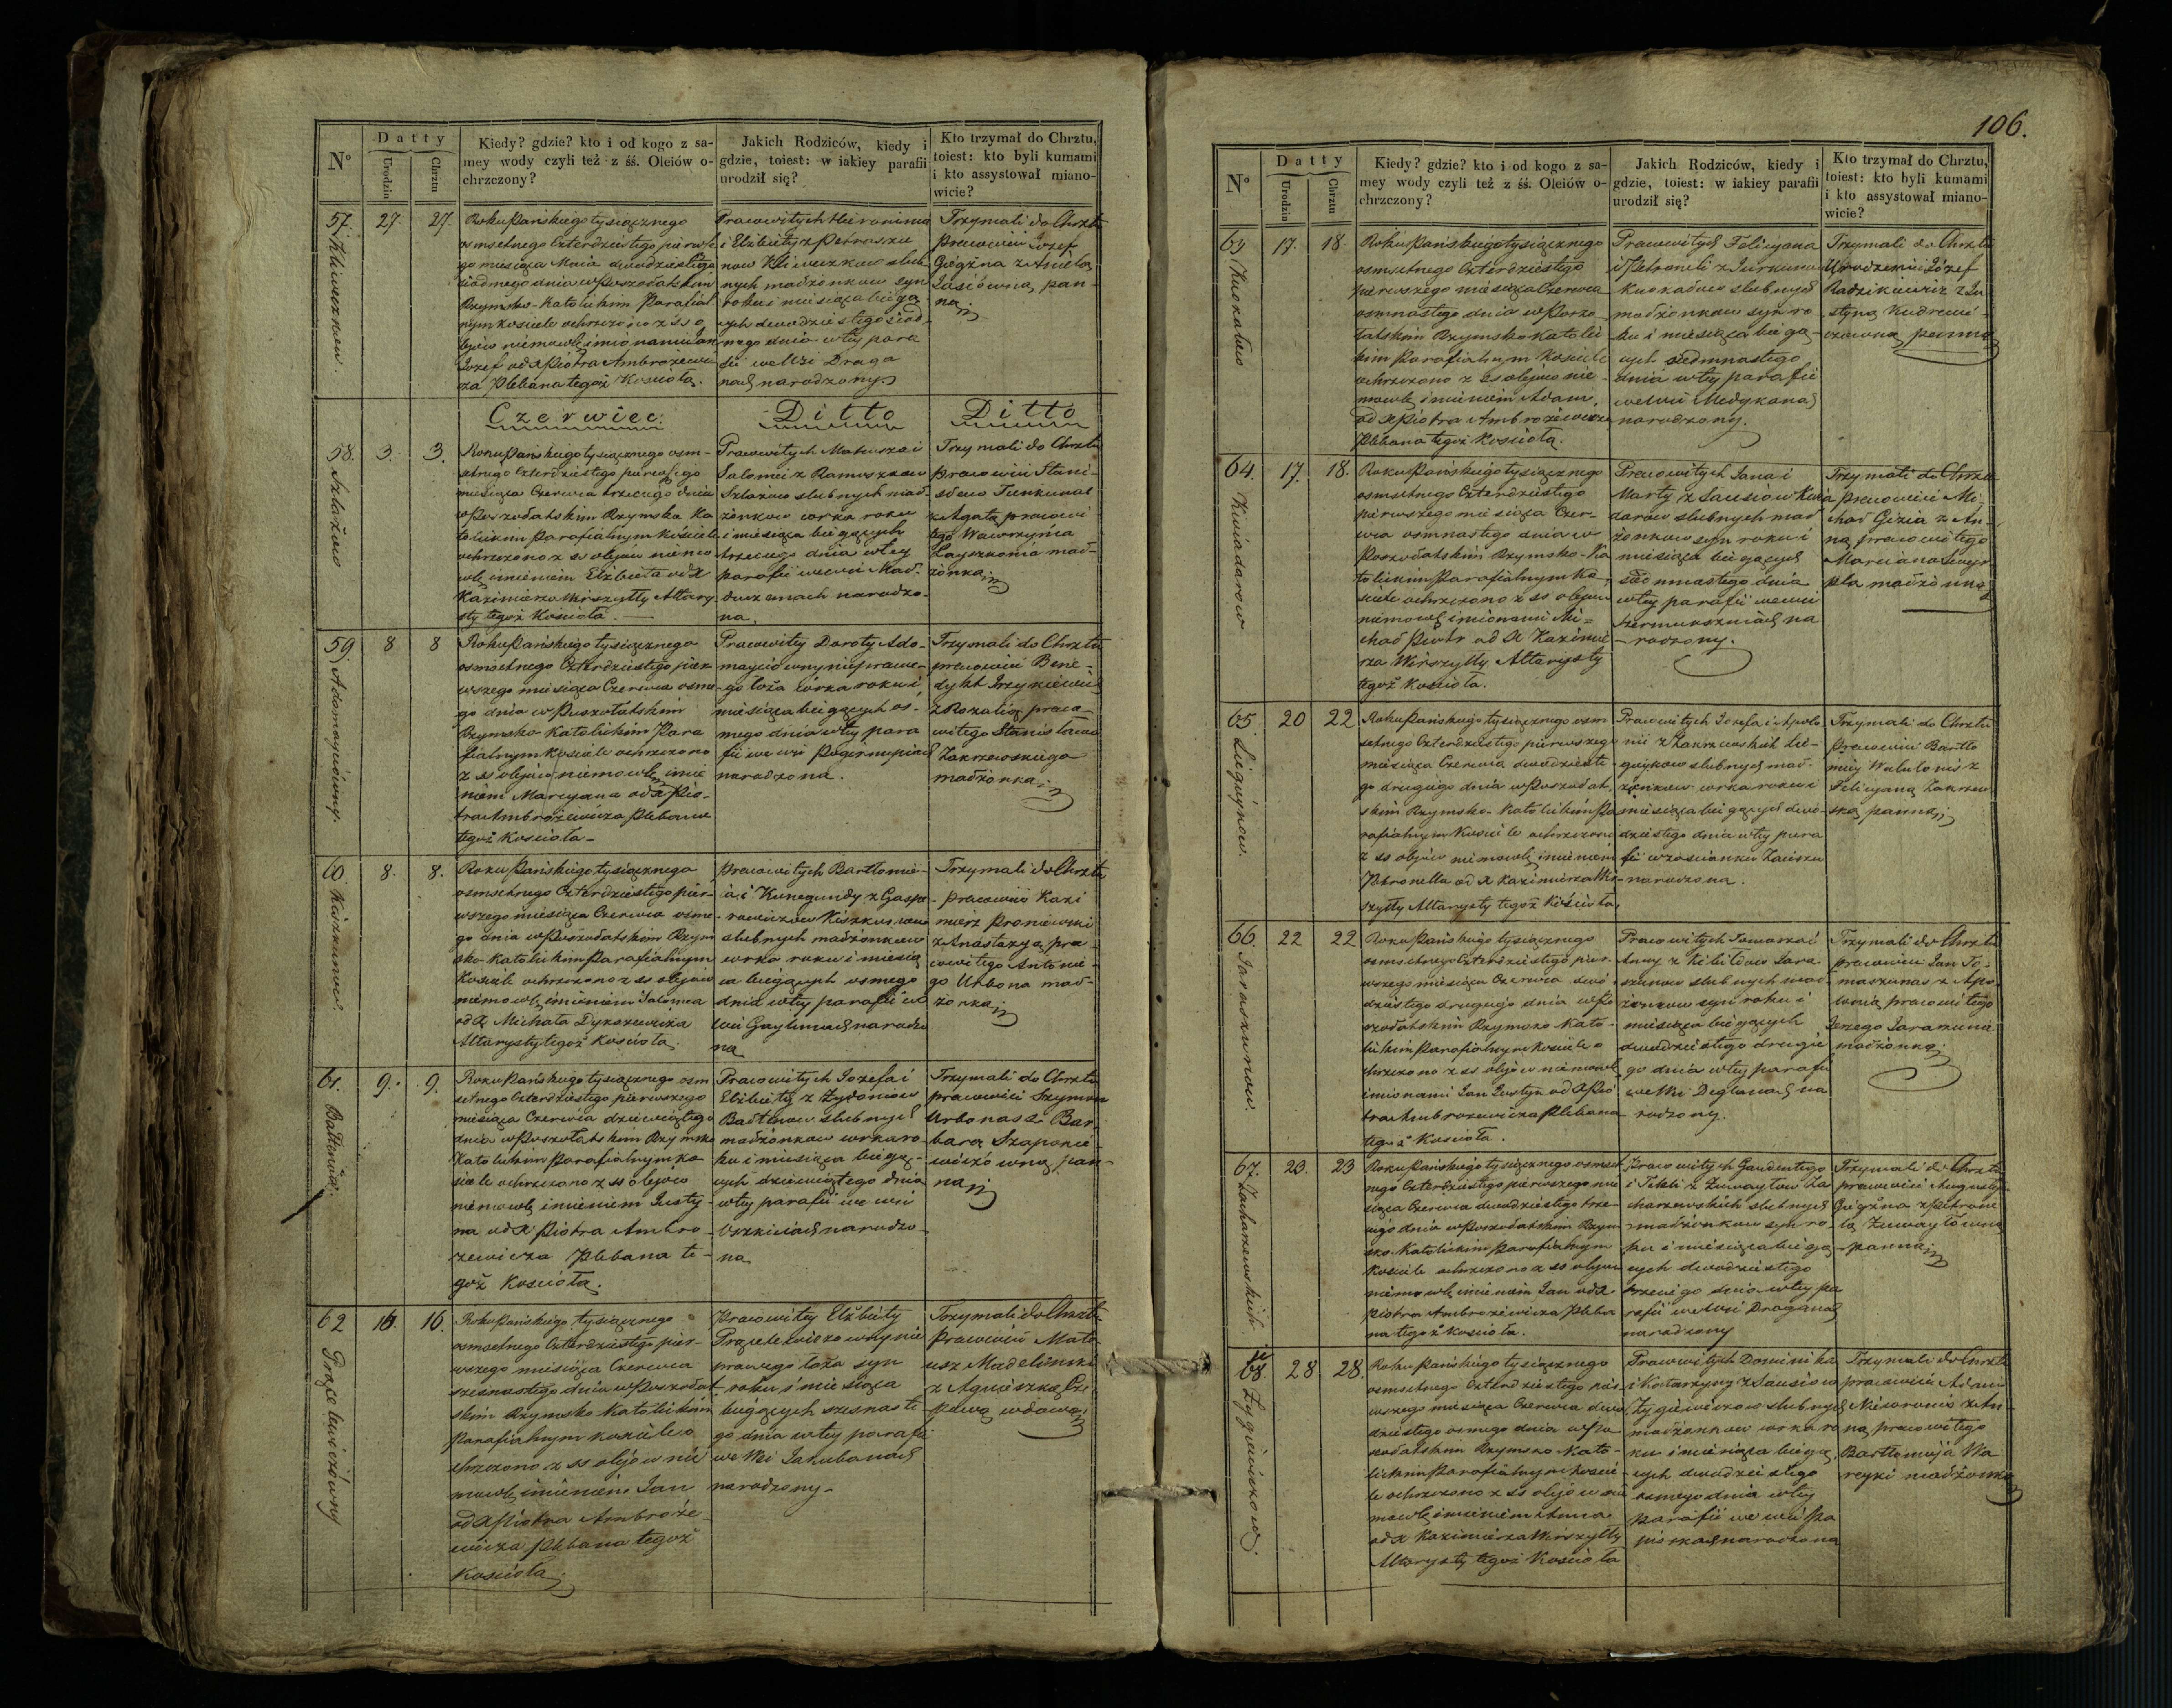 106.
Nº
Datty
Urodzin
Chrztu
Kiedy? gdzie? kto i od kogo z sa-
mey wody czyli też z śś. Oleiów o-
chrzczony?
Jakich Rodziców, kiedy i
gdzie, toiest: w iakiey parafii
urodził się?
Kto trzymał do Chrztu,
toiest: kto byli kumami
i kto assystował miano-
wicie?
57.
27.
27.
Roku Pańskiego tysiącznego
osmsetnego Czterdziestego pierwsze
go miesiąca Maia dwudziestego
siódmego dnia w Poszołatskim
Rzymsko-Katolickim Parafial
nym kosciele ochrzczono z śś o
lejów niemowlę imionami Jan
Jozef od X Piotra Ambrożewi
cza Plebana tegoż Kościoła.
Pracowitych Hieronima
i Elżbiety z Petraszu
now slub-
nych małżonkow syn
roku i miesiąca bieżą
cych dwudziestego siod
mego dnia w tey para
fii we Wsi Draga
nach narodzony
Trzymali do Chrztu
pracowici Jozef
Giegżna z Anielą
pan-
ną
Czerwiec.
Ditto
Ditto
58.
Szlażow
3.
3.
Roku Pańskiego tysiącznego osm-
setnego Czterdziestego pierwszego
miesiąca Czerwca trzeciego dnia
w Poszołatskim Rzymsko Ka
tolickim Parafialnym Kościele
ochrzczono z śś olejów niemo
wlę imieniem Elżbieta od X
Kazimierza Wirszyłły Altary
sty tegoż Kościoła.
Pracowitych Mateusza i
Salomei z Ramoszkow
Szlażow slubnych mał-
żonkow corka roku
i miesiąca bieżących
trzeciego dnia w tey
parafii we wsi Mał-
narodzo-
na.
Trzymali do Chrztu
pracowici Stani-
sław Tunkunas
z Agatą pracowi
tego Wawrzyńca
mał-
żonką
59
Adomayciówny.
8
8
Roku Pańskiego tysiącznego
osmsetnego Czterdziestego pier
wszego miesiąca Czerwca osme
go dnia w Puszołatskim
Rzymsko-Katolickim Para
fialnym Kościele ochrzczono
z śś olejów niemowlę imie
niem Maryana od X Pio-
tra Ambrożewicza Plebana
tegoż Kościoła
Pracowitey Doroty Ado-
mayciówny nieprawe-
go łoża córka roku i
miesiąca bieżących os-
mego dnia w tey para
fii we wsi
narodzona.
Trzymali do Chrztu
pracowici Bene-
dykt
z Rozalią praco-
witego Stanisława
Zakrzewskiego
małżonką
60
8.
8.
Roku Pańskiego tysiącznego
osmsetnego Czterdziestego pier-
wszego miesiąca Czerwca osme
go dnia w Puszołatskim Rzym
sko-Katolickim Parafialnym
Kościele ochrzczono z śś olejów
niemowlę imieniem Salomea
od X Michała Dyrszewicza
Altarysty tegoż Kościoła.
Pracowitych Bartłomie-
ia i Kunegundy z Gaspa-
rowiczow
slubnych małżonkow
corka roku i miesią
ca bieżących osmego
dnia w tey parafii we
wsi narodzo
na
Trzymali do Chrztu
pracowici Kazi
mierz Proniewski
z Anastazyą pra-
cowitego Antonie-
go Urbona mał-
żonką
61.
9.
9.
Roku Pańskiego tysiącznego osm
setnego Czterdziestego pierwszego
miesiąca Czerwca dziewiątego
dnia w Puszołatskim Rzymsko
Katolickim Parafialnym ko
ściele ochrzczono z śś olejów
niemowlę imieniem Justy-
na od X Piotra Ambro
żewicza Plebana te-
goż Kościoła.
Pracowitych Jozefa i
Elżbiety z
slubnych
małżonkow corka ro-
ku i miesiąca bieżą-
cych dziewiątego dnia
w tey parafii we wsi
narodzo-
na
Trzymali do Chrztu
pracowici Szymon
Urbonas z Bar
barą
pan-
ną
62
16.
16.
Roku Pańskiego tysiącznego
osmsetnego Czterdziestego pier-
wszego miesiąca Czerwca
szesnastego dnia w Poszołat
skim Rzymsko Katolickim
Parafialnym kościele o
chrzczono z śś olejów nie
mowlę imieniem Jan
od X Piotra Ambroże
wicza Plebana tegoż
Kościoła.
Pracowitey Elżbiety
nie
prawego łoża syn
roku i miesiąca
bieżących szesnaste
go dnia w tey parafii
we Wsi Jakubanach
narodzony
Trzymali do Chrztu
Pracowici Mate
usz Madeliński
z Agnieszką
wdową
Nº
Datty
Urodzin
Chrztu
Kiedy? gdzie? kto i od kogo z sa-
mey wody czyli też z śś. Oleiów o-
chrzczony?
Jakich Rodziców, kiedy i
gdzie, toiest: w iakiey parafii
urodził się?
Kto trzymał do Chrztu,
toiest: kto byli kumami
i kto assystował miano-
wicie?
63
17.
18.
Roku Pańskiego tysiącznego
osmsetnego Czterdziestego
pierwszego miesiąca Czerwca
osmnastego dnia w Poszo
łatskim Rzymsko-Katolic
kim Parafialnym Kościele
ochrzczono z śś olejów nie
mowlę imieniem Adam
od X Piotra Ambrożewicza
Plebana tegoż Kościoła.
Pracowitych Felicyana
i Petroneli z
slubnych
małżonkow syn ro
ku i miesiąca bieżą-
cych siedmnastego
dnia w tey parafii
we wsi Medykanach
narodzony.
Trzymali do Chrztu
Urodzeni Józef
Radzikiewicz z Ju
styną Kudrewi-
czowną panną
64.
17.
18.
Roku Pańskiego tysiącznego
osmsetnego Czterdziestego
pierwszego miesiąca Czer-
wca osmnastego dnia w
Poszołatskim Rzymsko-Ka
tolickim Parafialnym Ko
ściele ochrzczono z śś olejów
niemowlę imionami Mi-
chał Piotr od X Kazimie
rza Wirszyłły Altarysty
tegoż Kościoła.
Pracowitych Jana i
Marty z
slubnych mał
żonkow syn roku i
miesiąca bieżących
siedmnastego dnia
w tey parafii we wsi
na
rodzony.
Trzymali do Chrztu
pracowici Mi
chał Gizia z An-
ną pracowitego
Marciana
małżonką
65
20
22
Roku Pańskiego tysiącznego osm
setnego Czterdziestego pierwszego
miesiąca Czerwca dwudzieste
go drugiego dnia w Poszołat
skim Rzymsko-Katolickim Pa
rafialnym Kościele ochrzczono
z śś olejów niemowlę imieniem
Petronella od X Kazimierza Wir
szyłły Altarysty tegoż Kościoła.
Pracowitych Jozefa i Apolo
nii z Zakrzewskich
slubnych mał-
żonkow corka roku i
miesiąca bieżących dwu-
dziestego dnia w tey para
fii w zaścianku
narodzona.
Trzymali do Chrztu
Pracowici Bartło
miey z
Felicyaną Zakrzew
ską panną
66.
22
22
Roku Pańskiego tysiącznego
osmsetnego Czterdziestego pier
wszego miesiąca Czerwca dwu
dziestego drugiego dnia w Po
szołatskim Rzymsko Kato-
lickim Parafialnym Kościele o
chrzczono z śś olejów niemowlę
imionami Jan Justyn od X Pio
tra Ambrożewicza Plebana
tegoż Kościoła.
Pracowitych Tomasza i
Anny z
slubnych mał
żonkow syn roku i
miesiąca bieżących
dwudziestego drugie
go dnia w tey parafii
we Wsi na
rodzony.
Trzymali do Chrztu
pracowici Jan To
maszunas z Apo
lonią pracowitego
Jerzego
małżonką
67.
Zacharzewskich.
23.
23
Roku Pańskiego tysiącznego osmset
nego Czterdziestego pierwszego mie
siąca Czerwca dwudziestego trze-
ciego dnia w Poszołatskim Rzym
sko-Katolickim Parafialnym
Kościele ochrzczono z śś olejów
niemowlę imieniem Jan od X
Piotra Ambrożewicza Pleba
na tegoż Kościoła.
Pracowitych Gaudentego
i Tekli z Za
charzewskich slubnych
małżonkow syn ro-
ku i miesiąca bieżą
cych dwudziestego
trzeciego dnia w tey pa
rafii we Wsi Draganach
narodzony
Trzymali do Chrztu
pracowici Augustyn
Giegżna z Petrone
lą
panną
68
28
28.
Roku Pańskiego tysiącznego
osmsetnego Czterdziestego pier
wszego miesiąca Czerwca dwu
dziestego osmego dnia w Po
szołatskim Rzymsko-Kato-
lickim Parafialnym Koście
le ochrzczono z śś olejów nie
mowlę imieniem Anna
od X Kazimierza Wirszyłły
Altarysty tegoż Kościoła
Pracowitych Dominika
i Katarzyny z
slubnych
małżonkow corka ro
ku i miesiąca bieżą
cych dwudziestego
osmego dnia w tey
parafii we wsi
narodzona
Trzymali do Chrztu
pracowici Adam
z An-
ną pracowitego
Bartłomieja
małżonką